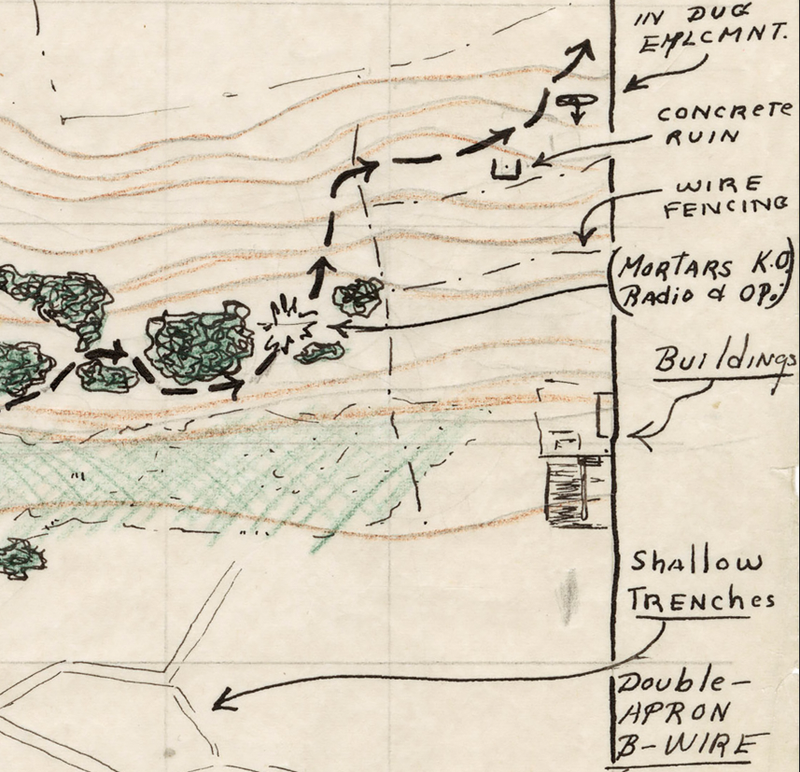 IN DUG
EMLCMNT.
CONCRETE
RUIN
WIRE
FENCING
(MORTARS K.O.
Radio & OP.)
Buildings
Shallow
TRENches
Double-
APRON
B-WIRE